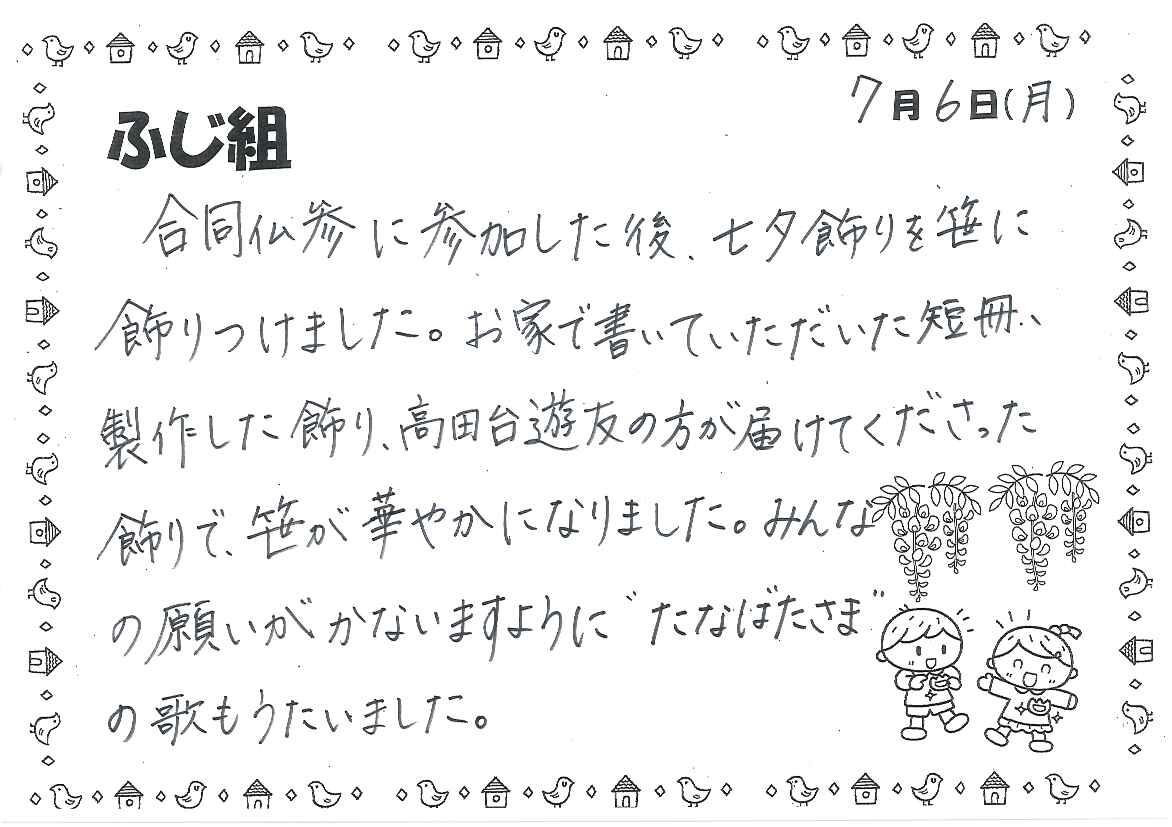 7月6日(月)
ふじ組
合同仏参に参加した後、七夕飾りを笹に
飾りつけました。お家で書いていただいた短冊、
製作した飾り、高田台遊友の方が届けてくださった
飾りで、笹が華やかになりました。みんな
の願いがかないますように“たなばたさま”
の歌もうたいました。